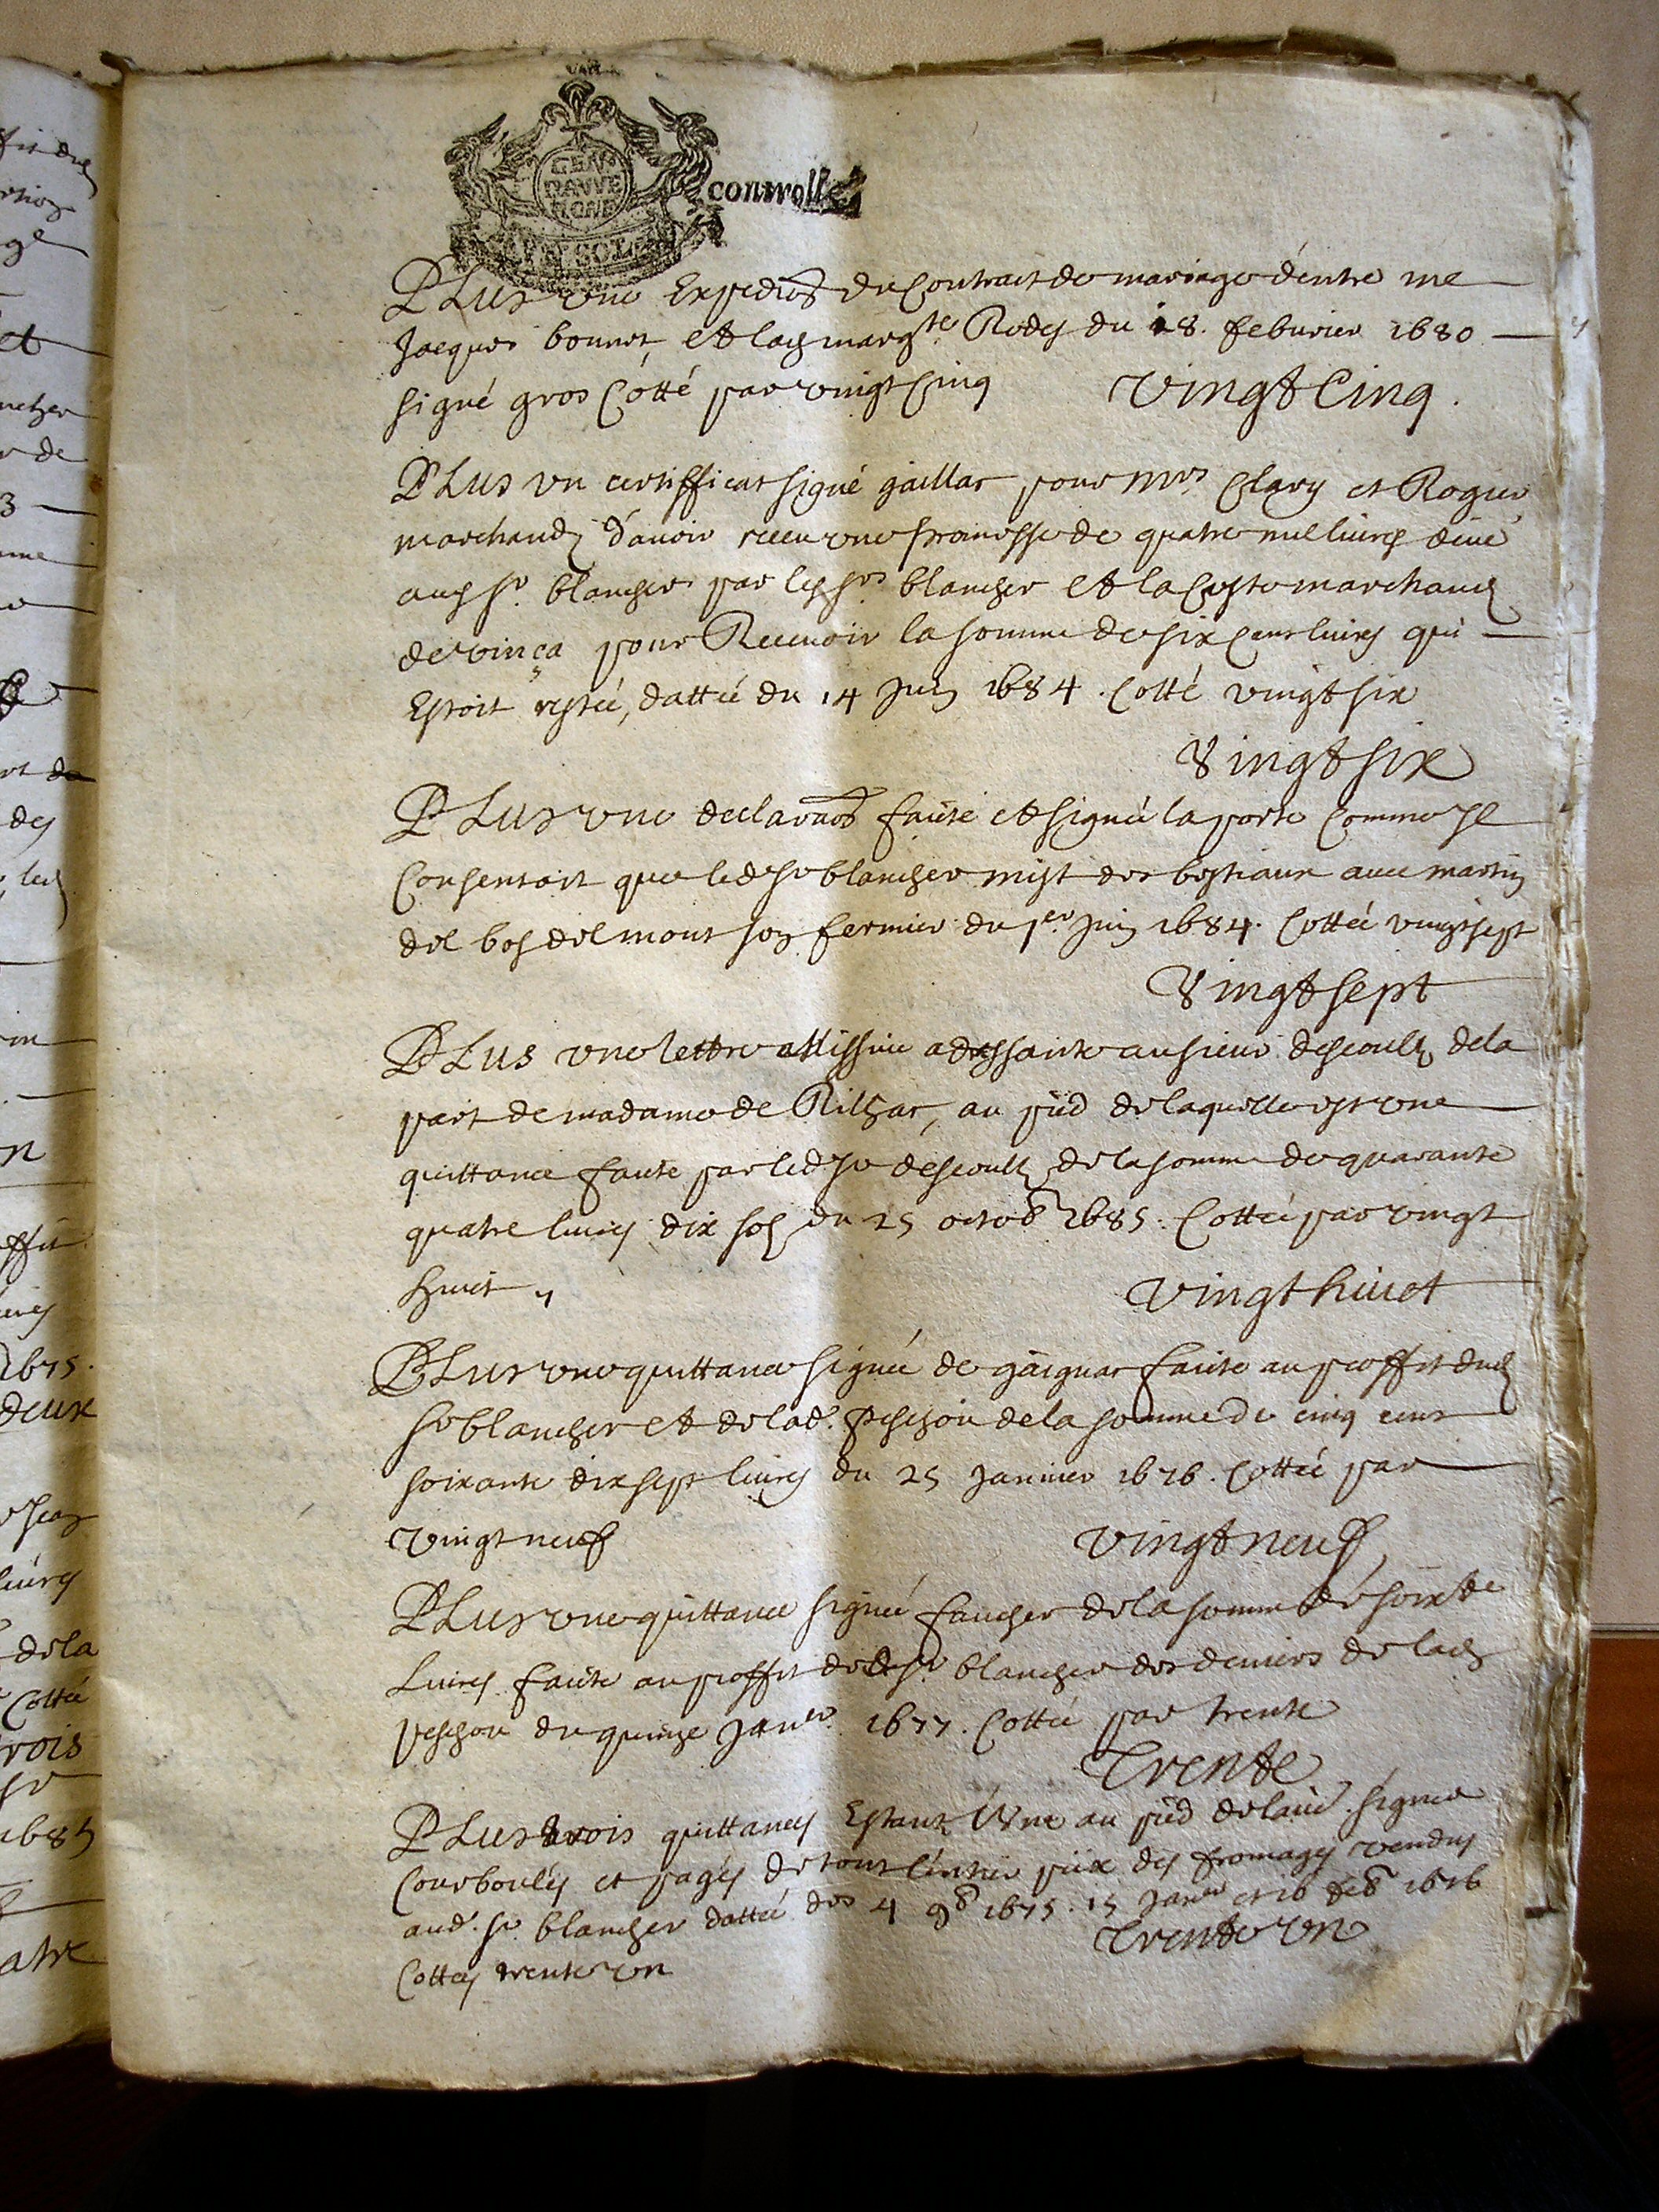 GEN
DAVVE
RGNE
SOLS
controllé
PLus une Expedion du Contract de mariage d'entre me
Jacques bonnet, et lad margte Rodes du 18. feburier 1680
signé gros Cotté par vingt Cinq
vingt Cinq.
PLus un certifficat signé gaillac pour Mrs Clary et Rogier
marchands d'auoir receu une promesse de quatre mil liures
aud sr. blancher par les srs blancher et la Coste marchand
de vinça pour Receuoir la somme de six Cens liures qui
Estoit restée, dattée du 14 Juin 1684. Cotté vingt six
Vingt six
PLus une declaraon faite et signée laporte Comme Il
Consentoit que led sr blancher mist des bestiaux auec martin
del bos del mont son fermier du 1er. Juin 1684. Cottée vingt sept
Vingt sept
PLus une lettre Missiue adressante au sieur descoulz de la
part de madame de Rilhac, au pied de laquelle est une
quittance faite par led sr descoulz de la somme de quarante
quatre liures dix sols du 25 octob 1685. Cottée par vingt
huit
vingt huict
PLus une quittance signée de gaignac faite au proffit dud
sr blancher et de lad. peschon de la somme de cinq cens
soixante dix sept liures du 25 Januier 1676. Cottée par
vingt neuf
vingt neuf
PLus une quittance signée faucher de la somme de soixte
Liures faite au proffit dud sr blancher des deniers de lad
peschon du quinze Janer. 1677. Cottée par trente
Trente
PLus trois quittances Estant Une au pied de laud. signée
Courboulés et pagés de tout l'entier prix des fromages vendus
aud. sr. blancher dattée des 4 9b 1675. 15 Janer et 16 feb 1676
Cottes trente un
Trente Un